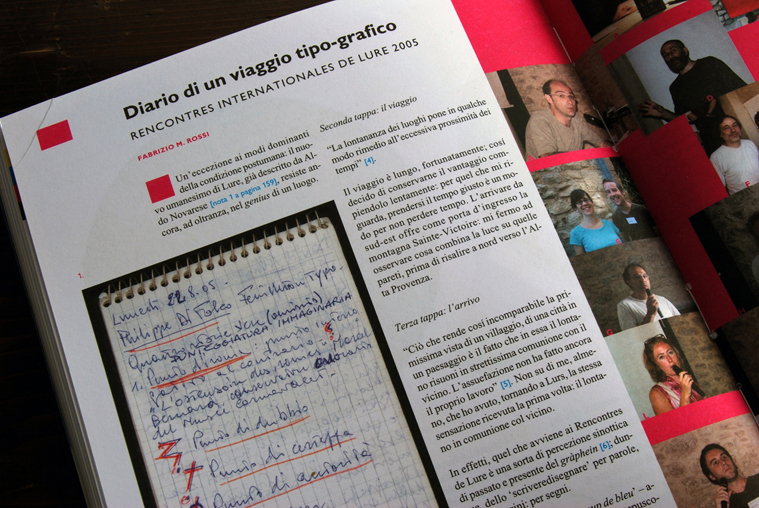 Diario di un viaggio tipo-grafico
RENCONTRES INTERNATIONALES DE LURE 2005
FABRIZIO M. ROSSI
Un'eccezione ai modi dominanti
della condizione postumana: il nuo-
vo umanesimo di Lure, già descritto da Al-
do Novarese [nota 1 a pagina 159], resiste an-
cora, ad oltranza, nel genius di un luogo.
1.
Lunedì 22.8.05.
Philippe Di Folco
1.
Punto di dubbio
Punto di certezza
Punto di autorità
Seconda tappa: il viaggio
“La lontananza dei luoghi pone in qualche
modo rimedio all'eccessiva prossimità dei
tempi” [4].
Il viaggio è lungo, fortunatamente; così
decido di conservarne il vantaggio com-
piendolo lentamente: per quel che mi ri-
guarda, prendersi il tempo giusto è un mo-
do per non perdere tempo. L'arrivare da
sud-est offre come porta d'ingresso la
montagna Sainte-Victoire: mi fermo ad
osservare cosa combina la luce su quelle
pareti, prima di risalire a nord verso l'Al-
ta Provenza.
Terza tappa: l'arrivo
“Ciò che rende così incomparabile la pri-
missima vista di un villaggio, di una città in
un paesaggio è il fatto che in essa il lonta-
no risuoni in strettissima comunione con il
vicino. L'assuefazione non ha fatto ancora
il proprio lavoro” [5]. Non su di me, alme-
no, che ho avuto, tornando a Lurs, la stessa
sensazione ricevuta la prima volta: il lonta-
no in comunione col vicino.
In effetti, quel che avviene ai Rencontres
de Lure è una sorta di percezione sinottica
di passato e presente del gràphein [6]; dun-
dello 'scriveredisegnare' per parole,
per segni.
F